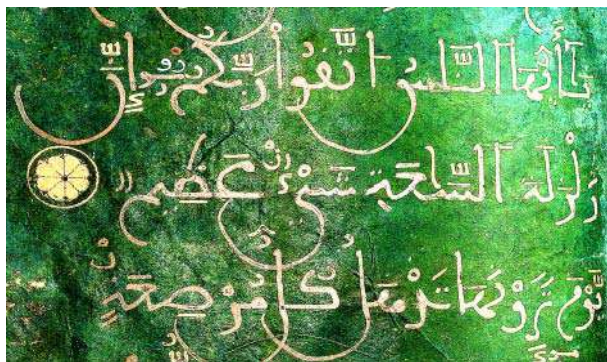 يَٰأَيُّهَا اَ۬لنَّاسُ اُ۪تَّقُواْ رَبَّكُمُۥٓ إِنَّ
زَلْزَلَةَ اَ۬لسَّاعَةِ شَےْءٌ عَظِيمٌ
يَوْمَ تَرَوْنَهَا تَذْهَلُ كُلُّ مُرْضِعَةٍ